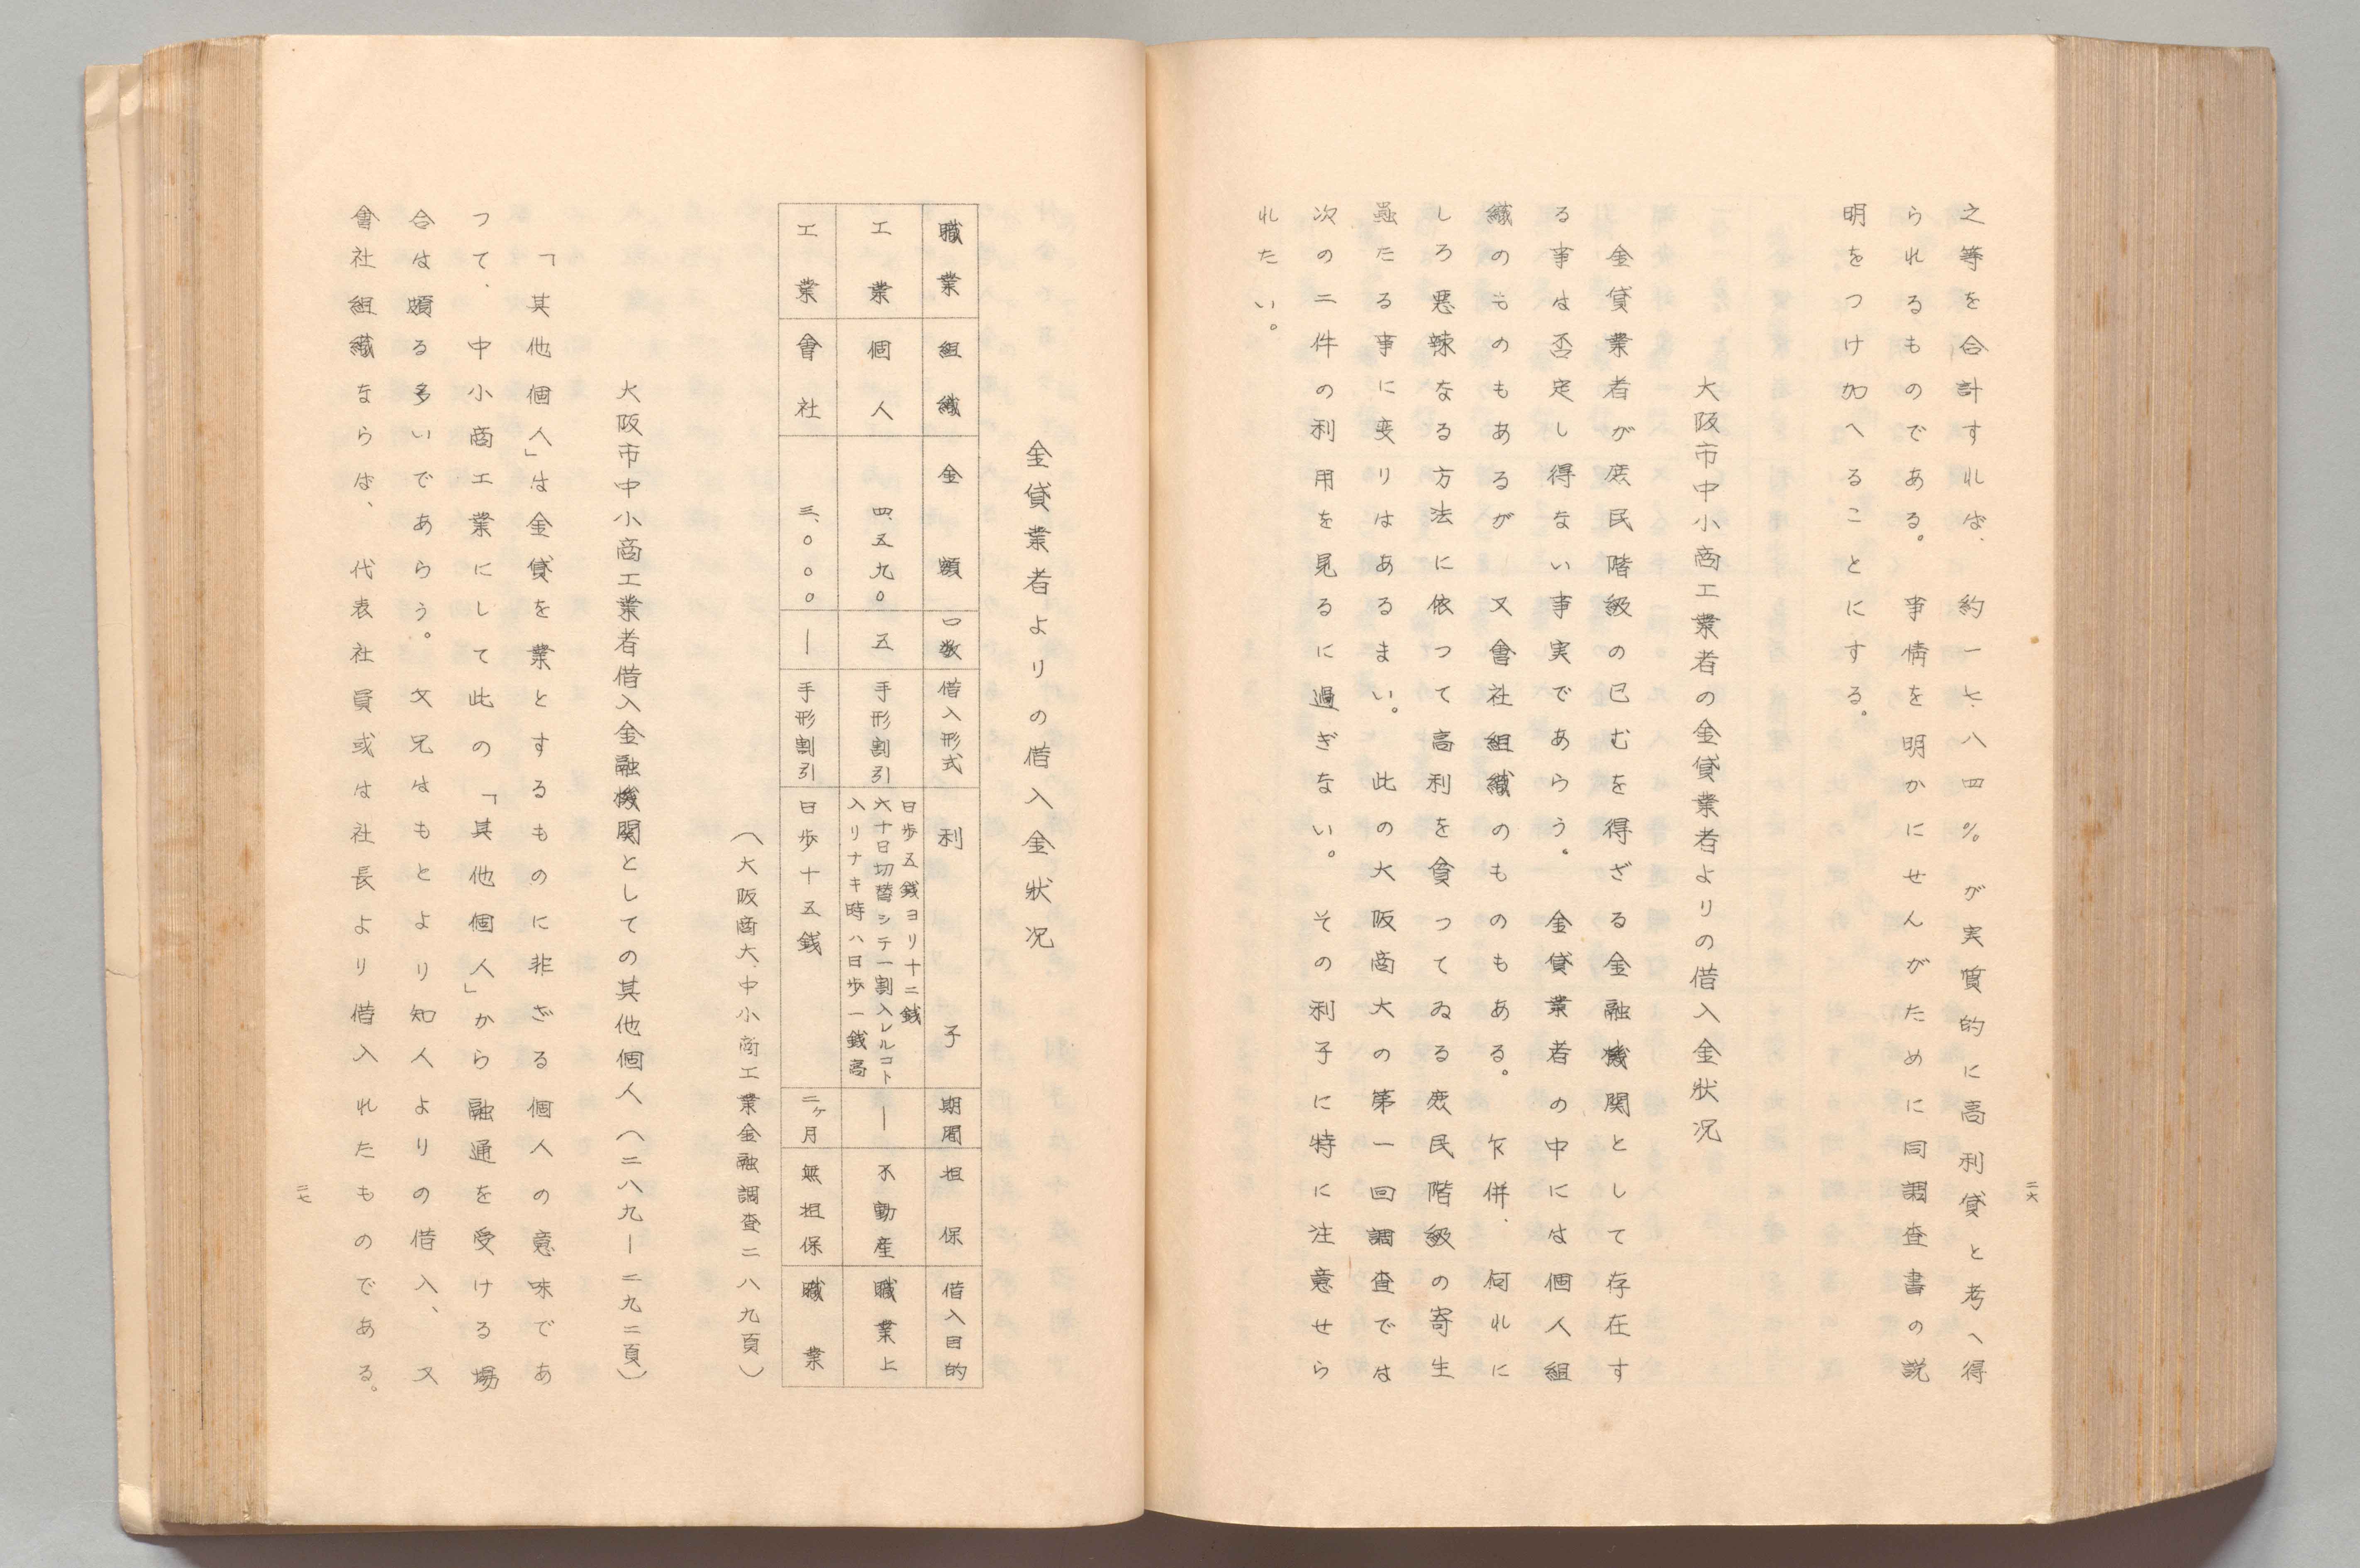 之等を合計すれば、約一七、八四％が実質的に高利貸と考へ得
られるものである。事情を明かにせんがために同調査書の説
明をつけ加へることにする。
大阪市中小商工業者の金貸業者よりの借入金狀況
金貸業者が庶民階級の已むを得ざる金融機関として存在す
る事は否定し得ない事実であらう。金貸業者の中には個人組
織のものものもあるが又會社組織のものもある。乍併、何れに
しろ悪辣なる方法に依つて高利を貪つてゐる庶民階級の寄生
蟲たる事に変りはあるまい。此の大阪商大の第一回調査では
次の二件の利用を見るに過ぎない。その利子に特に注意せら
れたい。
二六
金貸業者よりの借入金狀況
職業 組織 金額 口数 借入形式 利子 期間 担保 借入目的
工業 個人 四、五九〇 五 手形割引 日歩五銭ヨリ十二銭
六十日切替シテ一割入レルコト
入リナキ時ハ日歩一銭高 ー 不動産 職業上
工業 會社 三、〇〇〇 ー 手形割引 日歩十五銭 二ヶ月 無担保 職業
（大阪商大、中小商工業金融調査二八九頁）
大阪市中小商工業者借入金融機関としての其他個人（二八九ー二九二頁）
「其他個人」は金貸を業とするものに非ざる個人の意味であ
つて、中小商工業にして此の「其他個人」から融通を受ける場
合は頗る多いであらう。父兄はもとより知人よりの借入、又
會社組織ならば、代表社員或は社長より借入れたものである。
二七